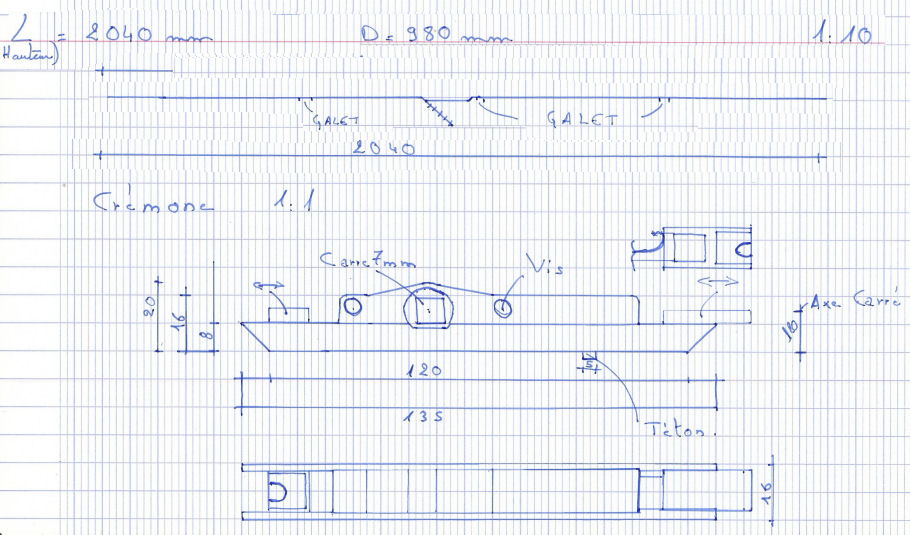 L = 2040 mm D = 980 mm 1:10
(Hauteur)
GALET GALET
2040
Crémone 1:1
Carré 7mm Vis
20 16 8 Axe Carré
5
120
135
Téton.
16